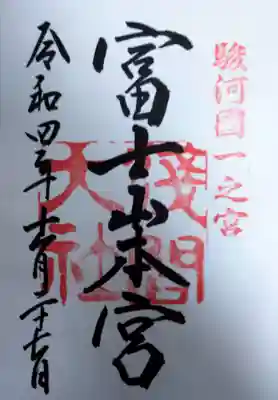 駿河國一之宮
富士山本宮
淺間
大社
令和四年十一月二十七日